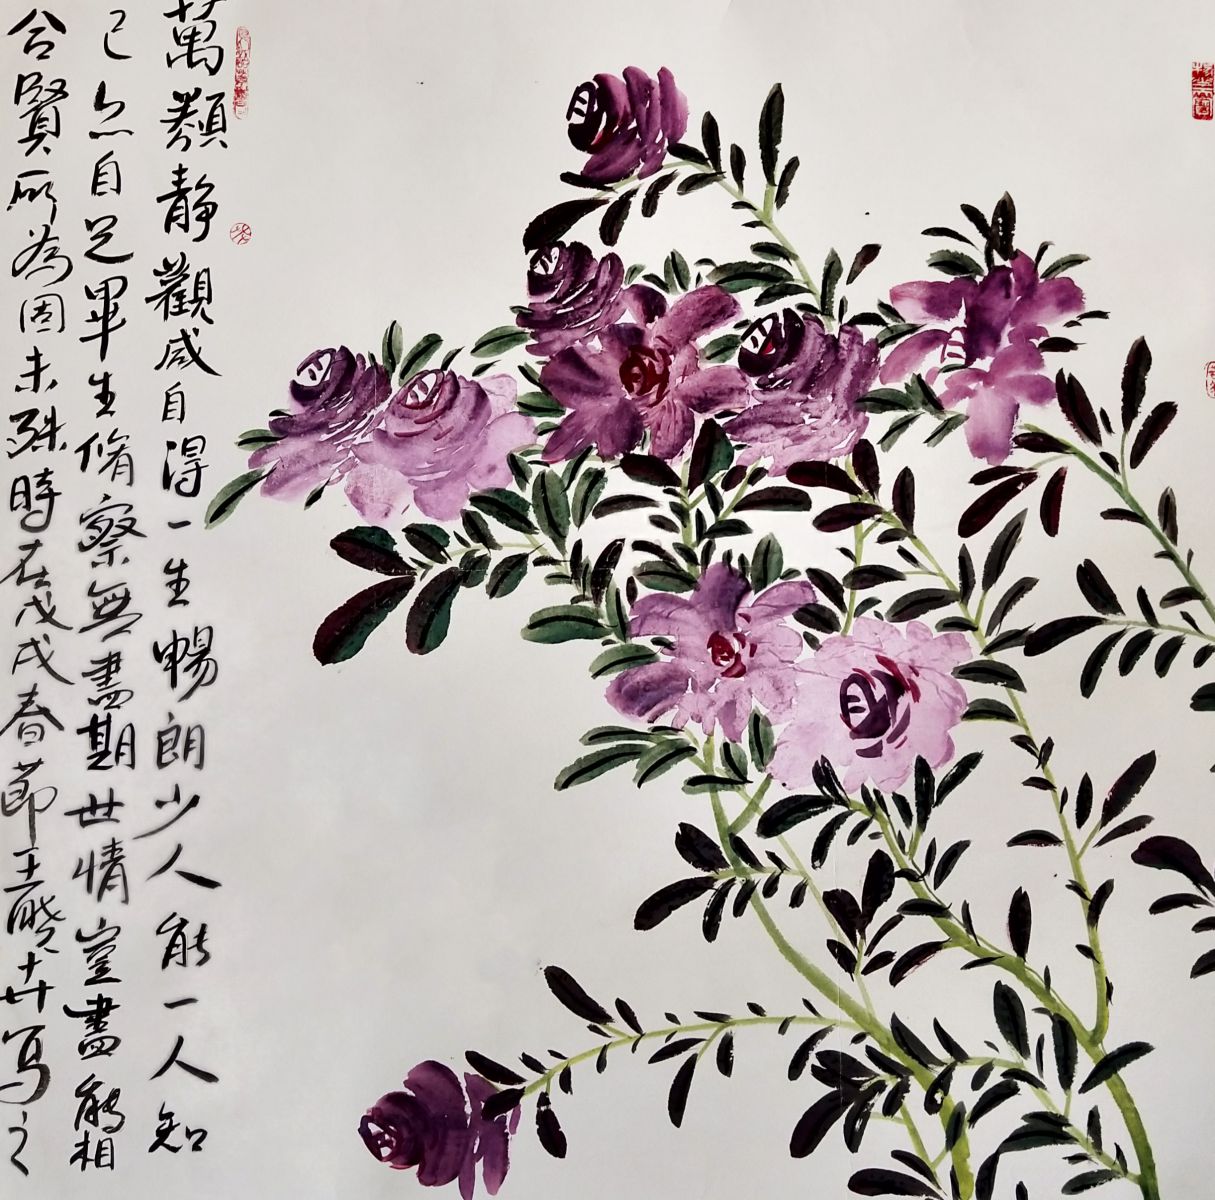 萬纇靜觀咸自得一生暢朗少人能一人知
已亦自足畢生脩察無盡期世情豈盡能相
合賢所為固未殊時在戊戌春節王曉卉写之